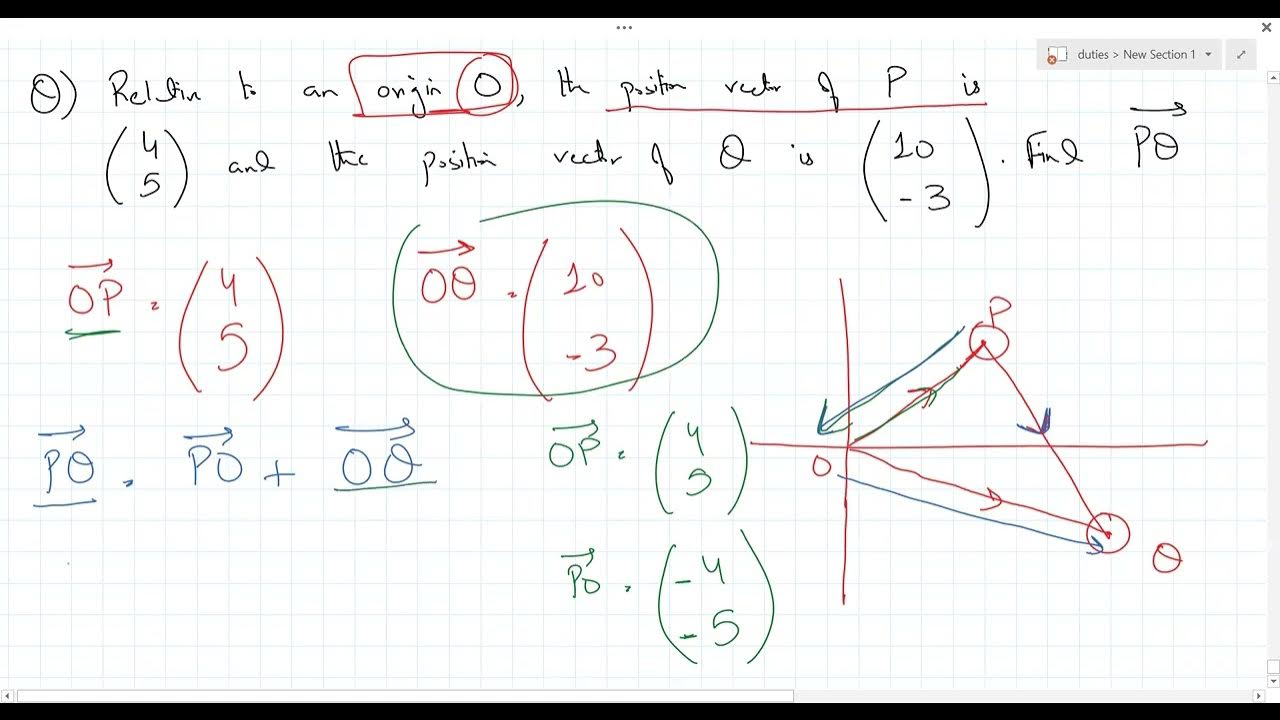 duties > New Section 1
Q) Relation to an origin O, the position vector of P is
(4 5) and the position vector of Q is (10 -3). Find PQ
OP = (4 5)
OQ = (10 -3)
PQ = PO + OQ
OP = (4 5)
PO = (-4 -5)
P
O
Q